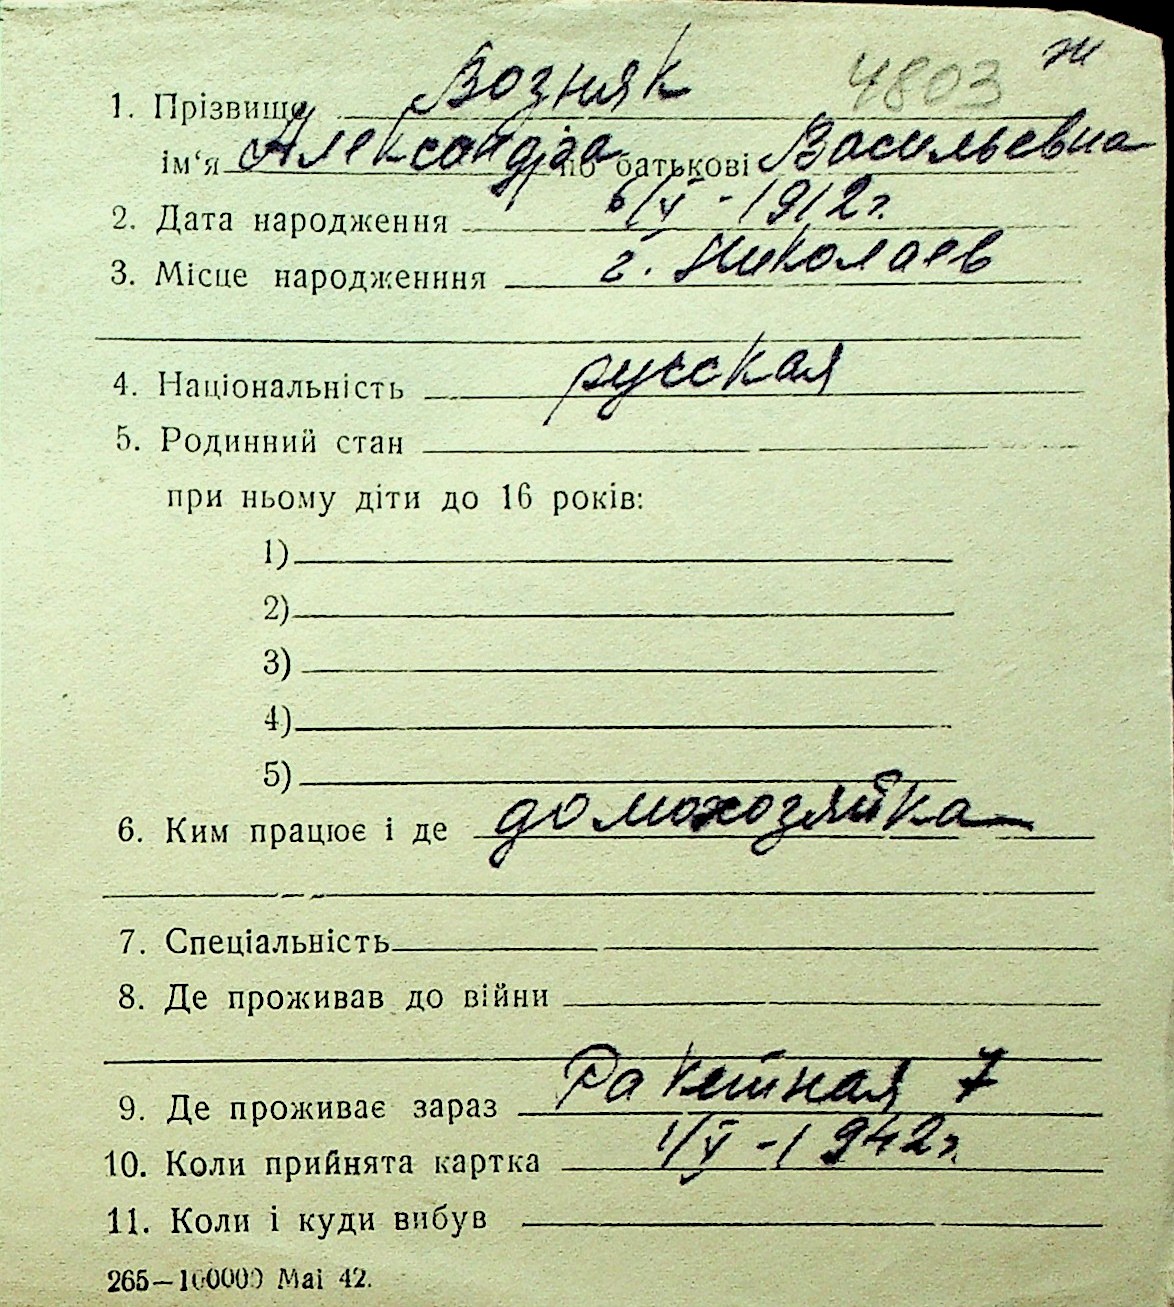 ж
4803
1. Прізвище Возняк
ім‘я Александра по батькові Васильевна
2. Дата народження 6/V - 1912 г.
3. Місце народженння г. Николаев
4. Національність русская
5. Родинний стан
при ньому діти до 16 років:
1)
2)
3)
4)
5)
6. Ким працює і де домохозяйка
7. Спеціальність
8. Де проживав до війни
9. Де проживає зараз Ракетная 7
10. Коли прийнята картка 1/V - 1942 г.
11. Коли і куди вибув
265—100000 Mai 42.